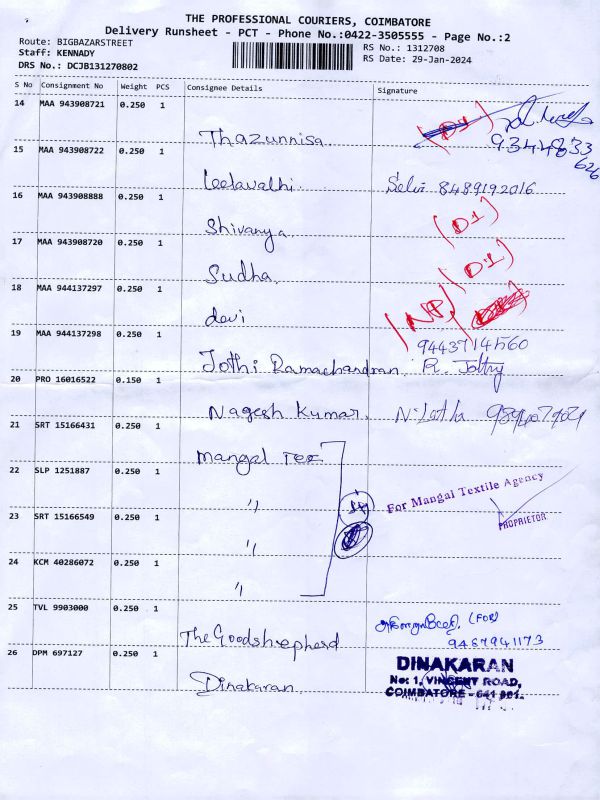 THE PROFESSIONAL COURIERS, COIMBATORE
Delivery Runsheet - PCT - Phone No.:0422-3505555 - Page No.:2
Route: BIGBAZARSTREET
Staff: KENNADY
DRS No.: DCJB131270802
RS No.: 1312708
RS Date: 29-Jan-2024
S No Consignment No Weight PCS Consignee Details Signature
14 MAA 943908721 0.250 1
Thazunnisa (D1)
93448
15 MAA 943908722 0.250 1
Leelavathi Selvi 8489192016
16 MAA 943908888 0.250 1
Shivanya (D1)
17 MAA 943908720 0.250 1
Sudha (D1)
18 MAA 944137297 0.250 1
devi (NP)
19 MAA 944137298 0.250 1
Jothi Ramachandran R.
20 PRO 16016522 0.150 1
Nagesh Kumar
21 SRT 15166431 0.250 1
Mangal Tex
22 SLP 1251887 0.250 1
〃 For Mangal Textile Agency
PROPRIETOR
23 SRT 15166549 0.250 1
〃
24 KCM 40286072 0.250 1
〃
25 TVL 9903000 0.250 1
The Goodshepherd (FOR)
9467941173
26 DPM 697127 0.250 1
Dinakaran
DINAKARAN
No: 1, VINCENT ROAD,
COIMBATORE - 641 001.